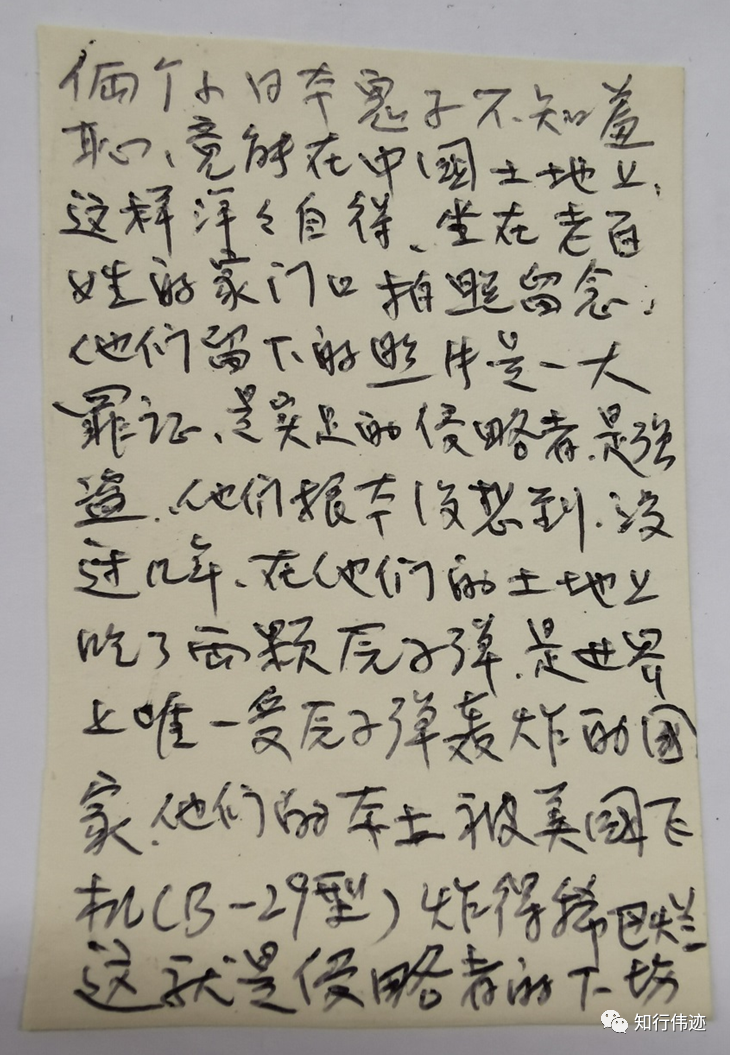 俩个小日本鬼子不知羞
耻、竟能在中国土地上,
这样洋々自得、坐在老百
姓的家门口拍照留念,
他们留下的照片是一大
罪证、是实足的侵略者.是强
盗.他们根本没想到.没
过几年、在他们的土地上
吃了两颗原子弹.是世界
上唯一受原子弹轰炸的国
家.他们的本土被美国飞
机(B-29型)炸得稀巴烂
这就是侵略者的下场
知行伟迹